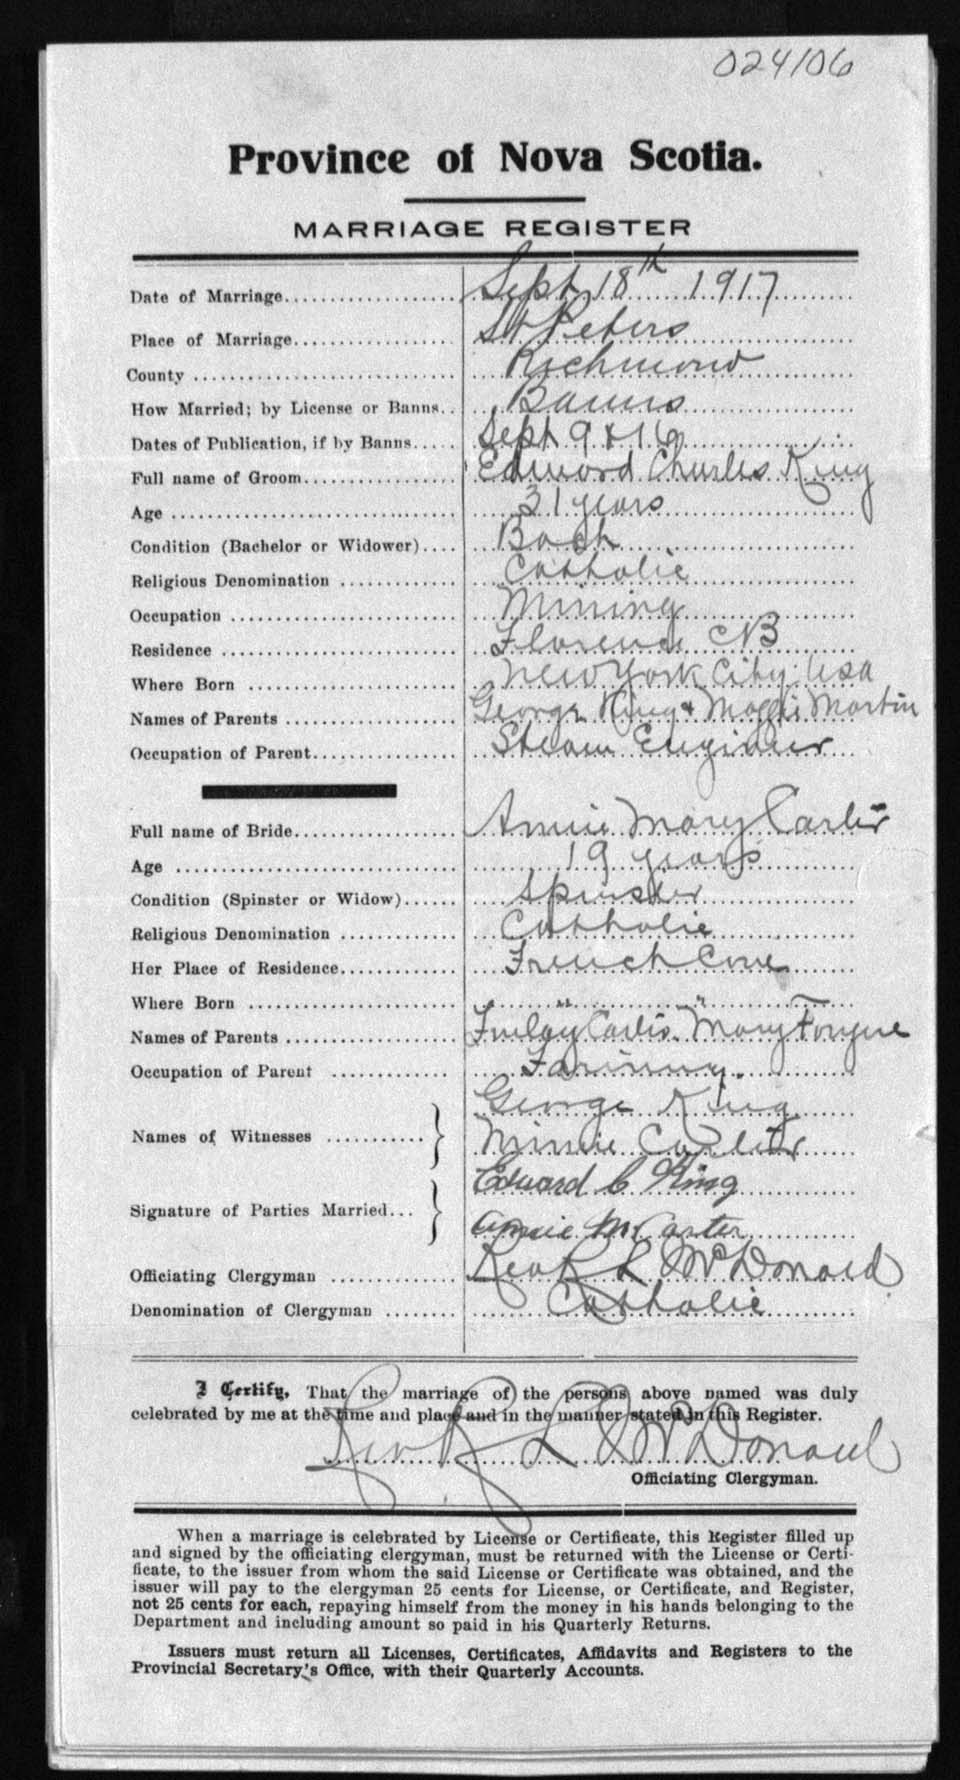 024106
Province of Nova Scotia.
MARRIAGE REGISTER
Date of Marriage Sept 18th 1917
Place of Marriage St Peters
County Richmond
How Married; by License or Banns Banns
Dates of Publication, if by Banns Sept 9 & 16
Full name of Groom Edward Charles King
Age 31 years
Condition (Bachelor or Widower) Bach
Religious Denomination Catholic
Occupation Mining
Residence Florence CB
Where Born New York City USA
Names of Parents George King & Maggie Martin
Occupation of Parent Steam Engineer
Full name of Bride Annie Mary
Age 19 years
Condition (Spinster or Widow) Spinster
Religious Denomination Catholic
Her Place of Residence French Cove
Where Born " "
Names of Parents Finlay Mary
Occupation of Parent Farming.
George King
Names of Witnesses
Minnie
Edward C King
Signature of Parties Married
Annie M Carter
Officiating Clergyman Rev R L McDonald
Denomination of Clergyman Catholic
I Certify, That the marriage of the persons above named was duly
celebrated by me at the time and place and in the manner stated in this Register.
Rev R L McDonald
Officiating Clergyman.
When a marriage is celebrated by License or Certificate, this Register filled up
and signed by the officiating clergyman, must be returned with the License or Certi-
ficate, to the issuer from whom the said License or Certificate was obtained, and the
issuer will pay to the clergyman 25 cents for License, or Certificate, and Register,
not 25 cents for each, repaying himself from the money in his hands belonging to the
Department and including amount so paid in his Quarterly Returns.
Issuers must return all Licenses, Certificates, Affidavits and Registers to the
Provincial Secretary's Office, with their Quarterly Accounts.